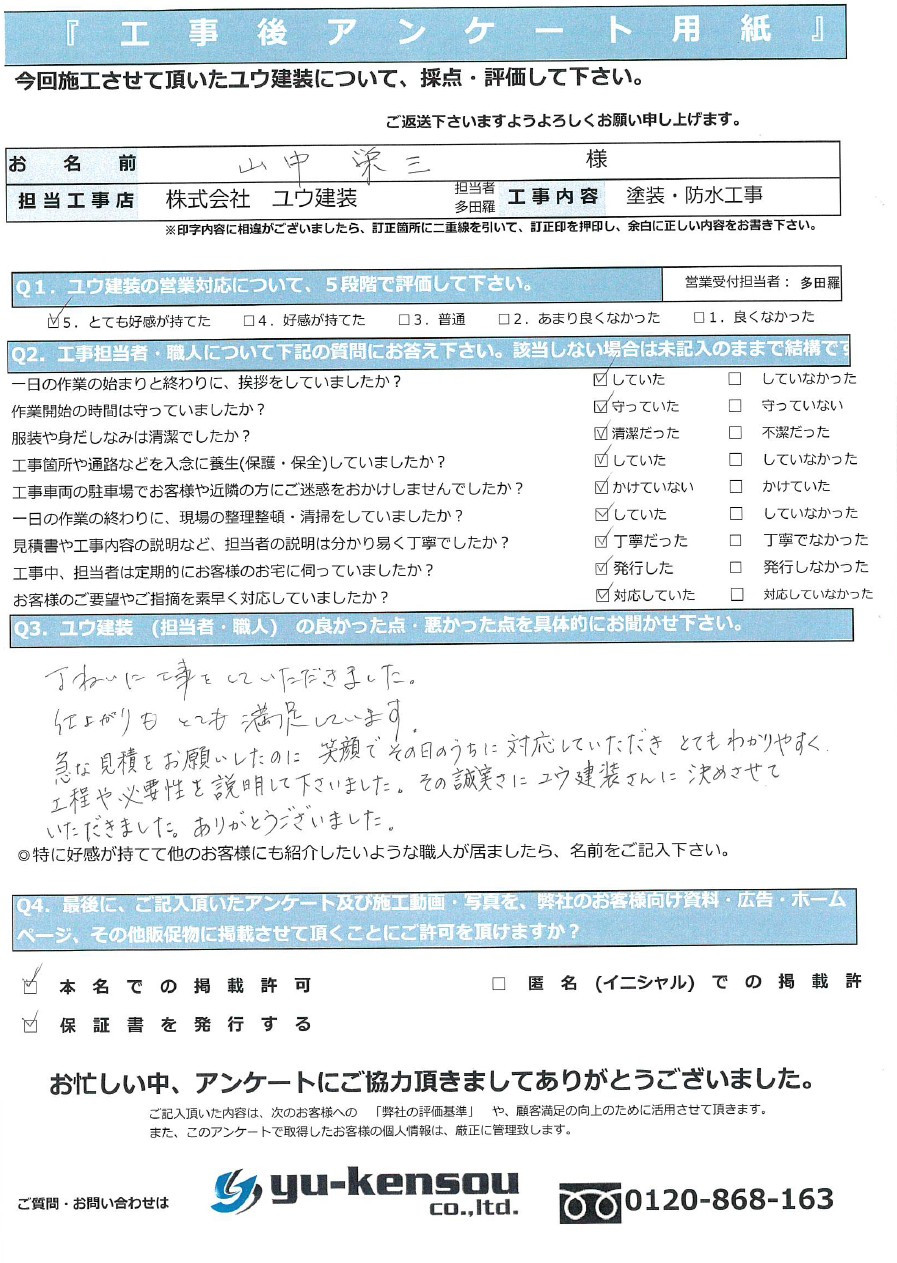 『工事後アンケート用紙』
今回施工させて頂いたユウ建装について、採点・評価して下さい。
ご返送下さいますようよろしくお願い申し上げます。
お名前 山中 栄三 様
担当工事店 株式会社 ユウ建装 担当者 多田羅 工事内容 塗装・防水工事
※印字内容に相違がございましたら、訂正箇所に二重線を引いて、訂正印を押印し、余白に正しい内容をお書き下さい。
Q1．ユウ建装の営業対応について、５段階で評価して下さい。 営業受付担当者：多田羅
☑5．とても好感が持てた □4．好感が持てた □3．普通 □2．あまり良くなかった □1．良くなかった
Q2．工事担当者・職人について下記の質問にお答え下さい。該当しない場合は未記入のままで結構です
一日の作業の始まりと終わりに、挨拶をしていましたか？ ☑していた □ していなかった
作業開始の時間は守っていましたか？ ☑守っていた □ 守っていない
服装や身だしなみは清潔でしたか？ ☑清潔だった □ 不潔だった
工事箇所や通路などを入念に養生(保護・保全)していましたか？ ☑していた □ していなかった
工事車両の駐車場でお客様や近隣の方にご迷惑をおかけしませんでしたか？ ☑かけていない □ かけていた
一日の作業の終わりに、現場の整理整頓・清掃をしていましたか？ ☑していた □ していなかった
見積書や工事内容の説明など、担当者の説明は分かり易く丁寧でしたか？ ☑丁寧だった □ 丁寧でなかった
工事中、担当者は定期的にお客様のお宅に伺っていましたか？ ☑発行した □ 発行しなかった
お客様のご要望やご指摘を素早く対応していましたか？ ☑対応していた □ 対応していなかった
Q3．ユウ建装 (担当者・職人) の良かった点・悪かった点を具体的にお聞かせ下さい。
丁ねいに工事をしていただきました。
仕上がりも とても 満足しています。
急な見積をお願いしたのに 笑顔でその日のうちに対応していただき とてもわかりやすく
工程や必要性を説明して下さいました。その誠実さにユウ建装さんに決めさせて
いただきました。ありがとうございました。
◎特に好感が持てて他のお客様にも紹介したいような職人が居ましたら、名前をご記入下さい。
Q4．最後に、ご記入頂いたアンケート及び施工動画・写真を、弊社のお客様向け資料・広告・ホーム
ページ、その他販促物に掲載させて頂くことにご許可を頂けますか？
☑ 本名での掲載許可 □ 匿名(イニシャル)での掲載許
☑ 保証書を発行する
お忙しい中、アンケートにご協力頂きましてありがとうございました。
ご記入頂いた内容は、次のお客様への 「弊社の評価基準」 や、顧客満足の向上のために活用させて頂きます。
また、このアンケートで取得したお客様の個人情報は、厳正に管理致します。
ご質問・お問い合わせは yu-kensou co.,ltd. 0120-868-163